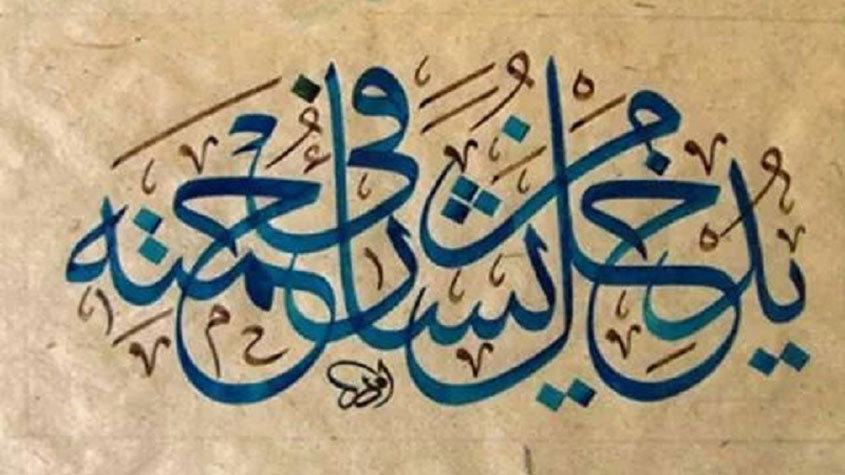 يُدْخِلُ مَنْ يَشَاءُ فِي رَحْمَتِهِ